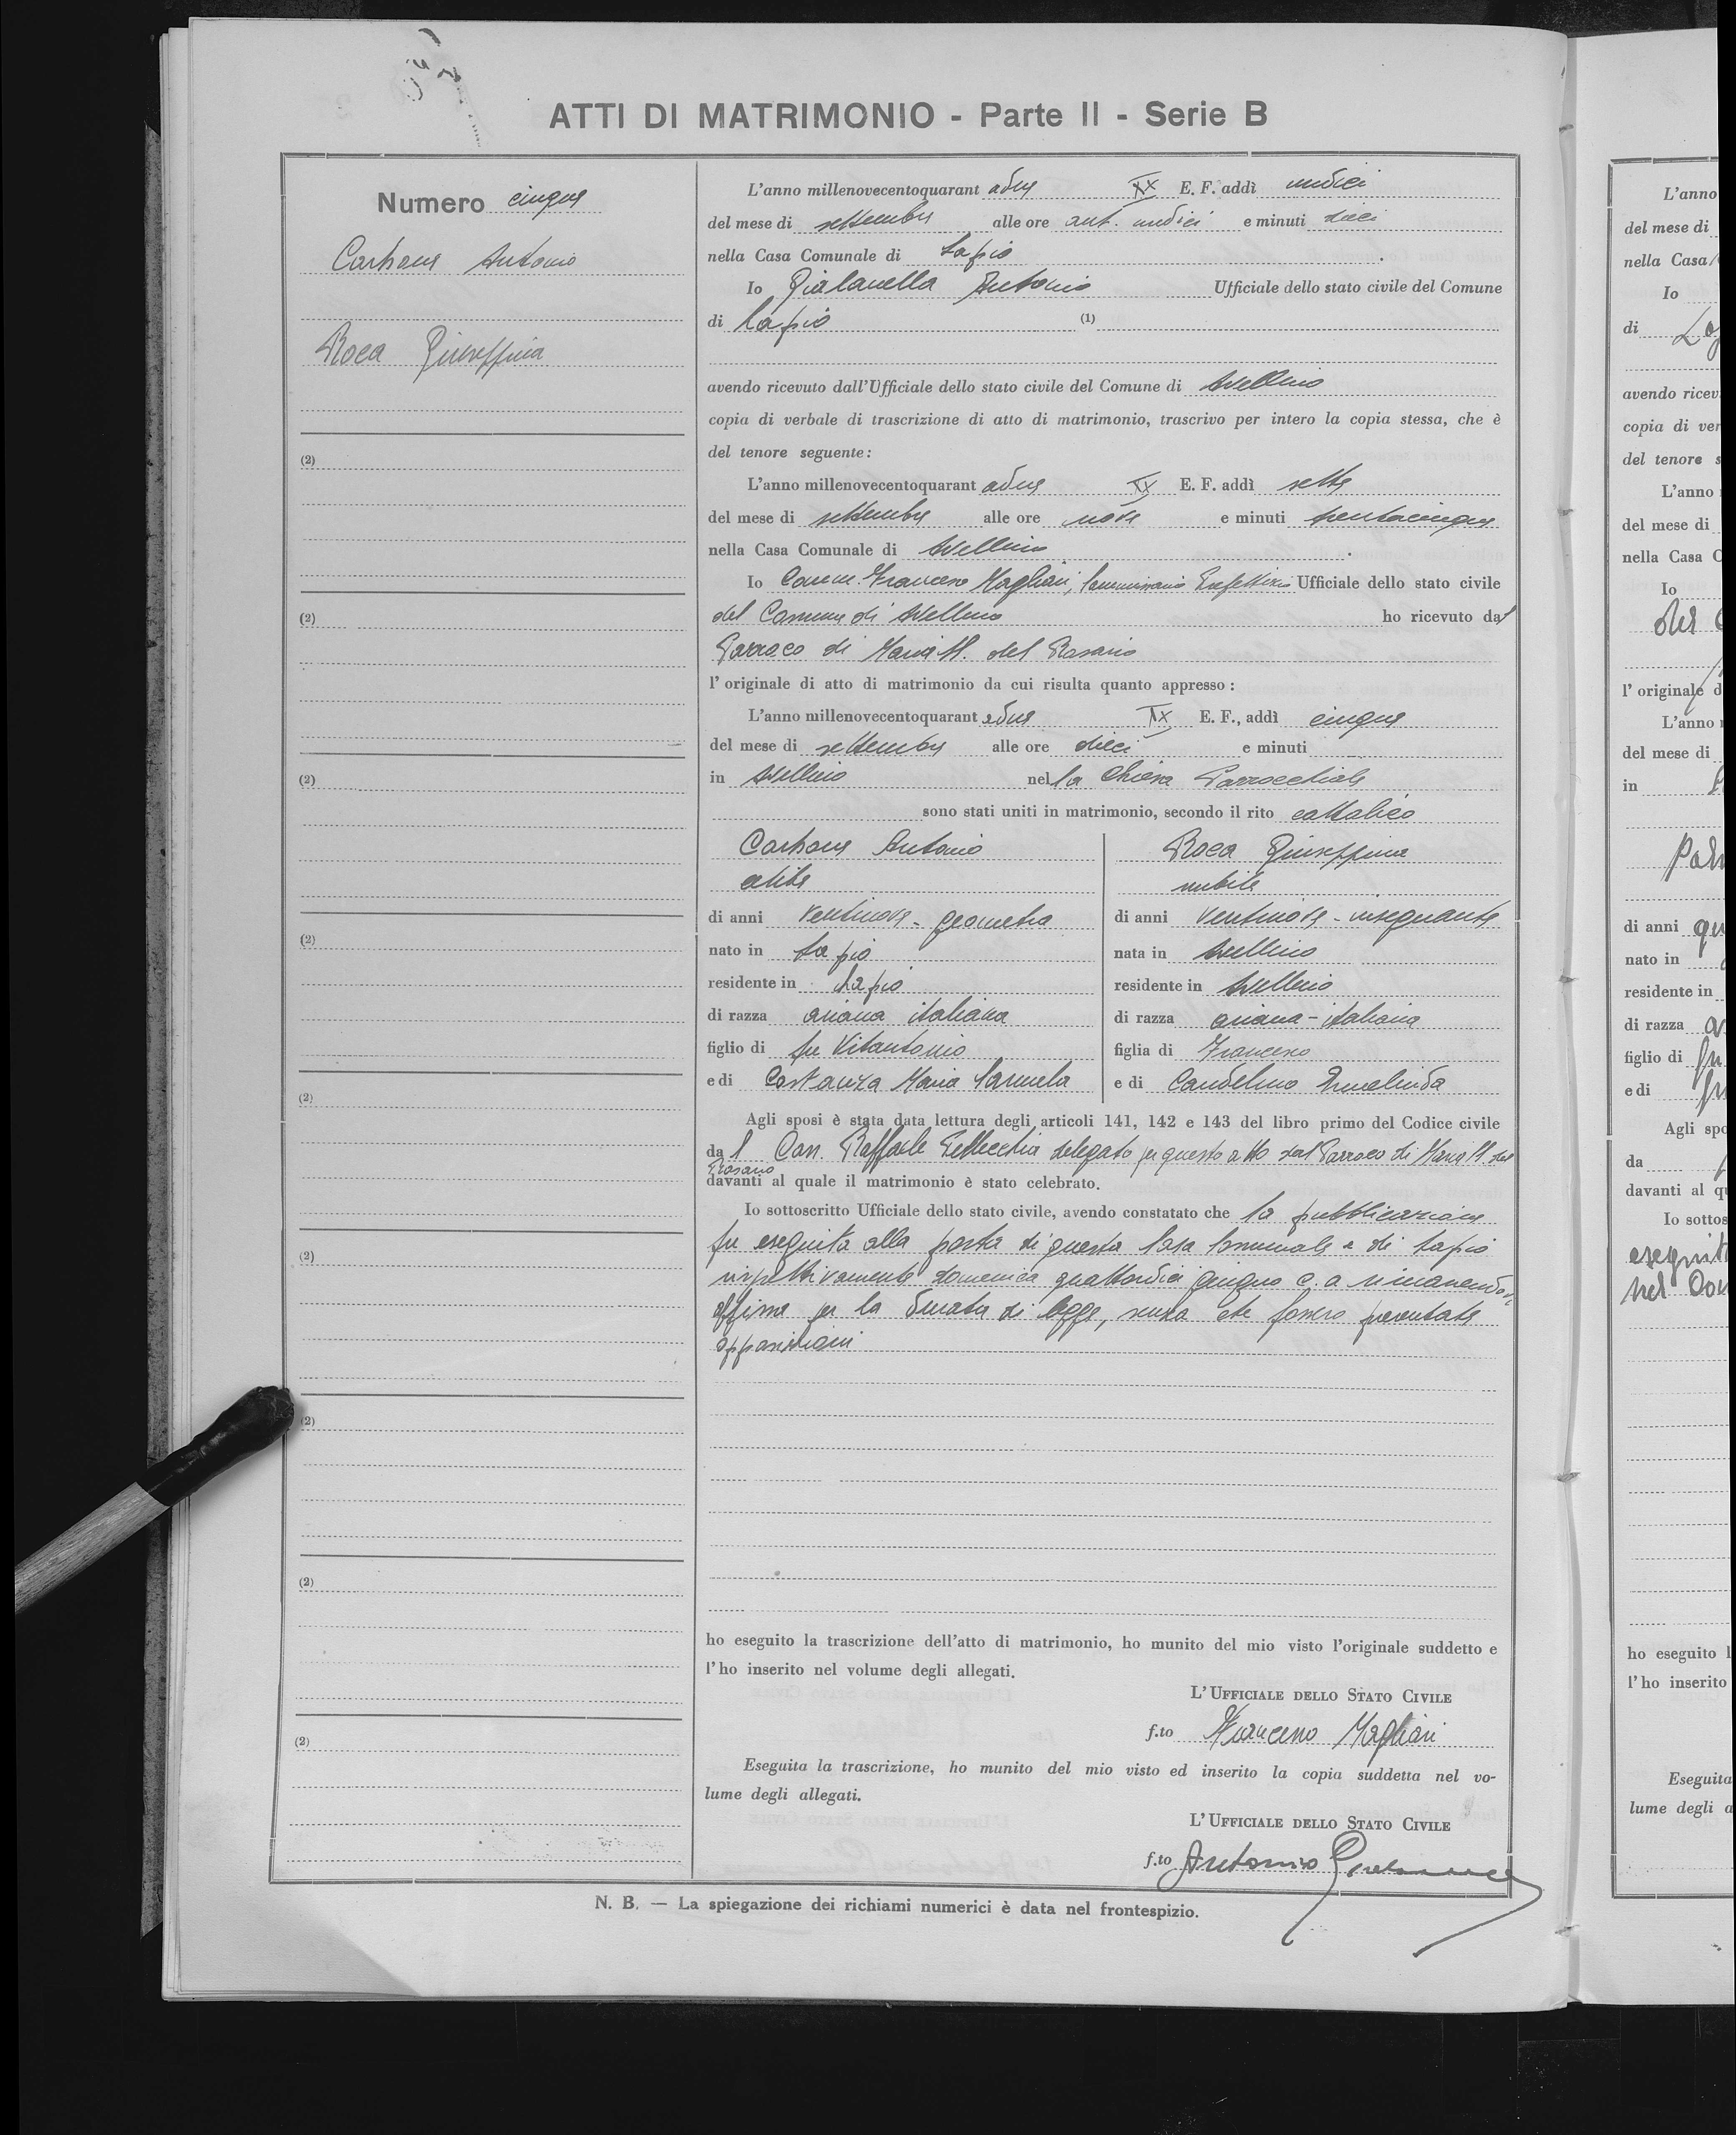 ATTI DI MATRIMONIO - Parte II - Serie B
Numero cinque
Carbone Antonio
Roca Giuseppina
(2)
(2)
(2)
(2)
(2)
(2)
(2)
(2)
(2)
L'anno millenovecentoquarantadue XX E. F. addì undici
del mese di settembre alle ore ant. undici e minuti dieci
nella Casa Comunale di Lapio
Io Gialanella Antonio Ufficiale dello stato civile del Comune
di Lapio (1)
avendo ricevuto dall'Ufficiale dello stato civile del Comune di Avellino
copia di verbale di trascrizione di atto di matrimonio, trascrivo per intero la copia stessa, che è
del tenore seguente:
L'anno millenovecentoquarantadue XX E. F. addì sette
del mese di settembre alle ore nove e minuti trentacinque
nella Casa Comunale di Avellino
Io Comm. Francesco Magliari, Commissario Prefettizio Ufficiale dello stato civile
del Comune di Avellino ho ricevuto dal
Parroco di Maria SS. del Rosario
l'originale di atto di matrimonio da cui risulta quanto appresso:
L'anno millenovecentoquarantadue XX E. F., addì cinque
del mese di settembre alle ore dieci e minuti
in Avellino nella Chiesa Parrocchiale
sono stati uniti in matrimonio, secondo il rito cattolico
Carbone Antonio
celibe
di anni ventinove - geometra
nato in Lapio
residente in Lapio
di razza ariana italiana
figlio di fu Vitantonio
e di Costanza Maria Carmela
Roca Giuseppina
nubile
di anni ventinove - insegnante
nata in Avellino
residente in Avellino
di razza ariana - italiana
figlia di Francesco
e di Candelmo Ermelinda
Agli sposi è stata data lettura degli articoli 141, 142 e 143 del libro primo del Codice civile
dal Can. Raffaele Pellecchia delegato per questo atto dal Parroco di Maria SS. del
Rosario
davanti al quale il matrimonio è stato celebrato.
Io sottoscritto Ufficiale dello stato civile, avendo constatato che la pubblicazione
fu eseguita alla porta di questa Casa Comunale e di Lapio
rispettivamente domenica quattordici giugno c. a rimanendovi
affissa per la durata di legge, senza che fossero presentate
opposizioni
ho eseguito la trascrizione dell'atto di matrimonio, ho munito del mio visto l'originale suddetto e
l'ho inserito nel volume degli allegati.
L'UFFICIALE DELLO STATO CIVILE
f.to Francesco Magliari
Eseguita la trascrizione, ho munito del mio visto ed inserito la copia suddetta nel vo-
lume degli allegati.
L'UFFICIALE DELLO STATO CIVILE
f.to Antonio Gialanella
N. B. — La spiegazione dei richiami numerici è data nel frontespizio.
L'anno
del mese di
nella Casa
Io
di
avendo ricev
copia di ver
del tenore s
L'anno
del mese di
nella Casa C
Io
del
l'originale d
L'anno
del mese di
in
di anni
nato in
residente in
di razza
figlio di fu
e di fu
Agli spo
da
davanti al q
Io sottos
eseguit
nel Com
ho eseguito
l'ho inserito
Eseguita
lume degli a